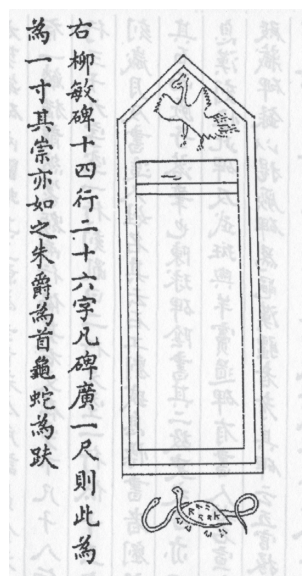 右柳敏碑十四行二十六字凡碑廣一尺則此為
為一寸其崇亦如之朱爵為首龜蛇為趺